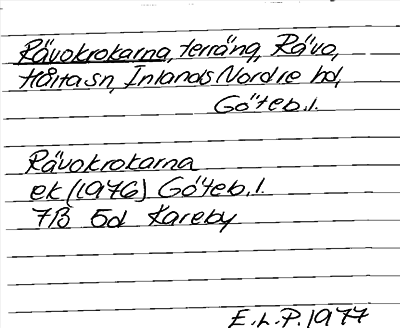 Rävokrokarna, terräng, Rävo,
Hålta sn, Inlands Nordre hd,
Göteb. l.
Rävokrokarna
ek (1976) Göteb. l.
7B 5d Kareby
E.L.P. 1977